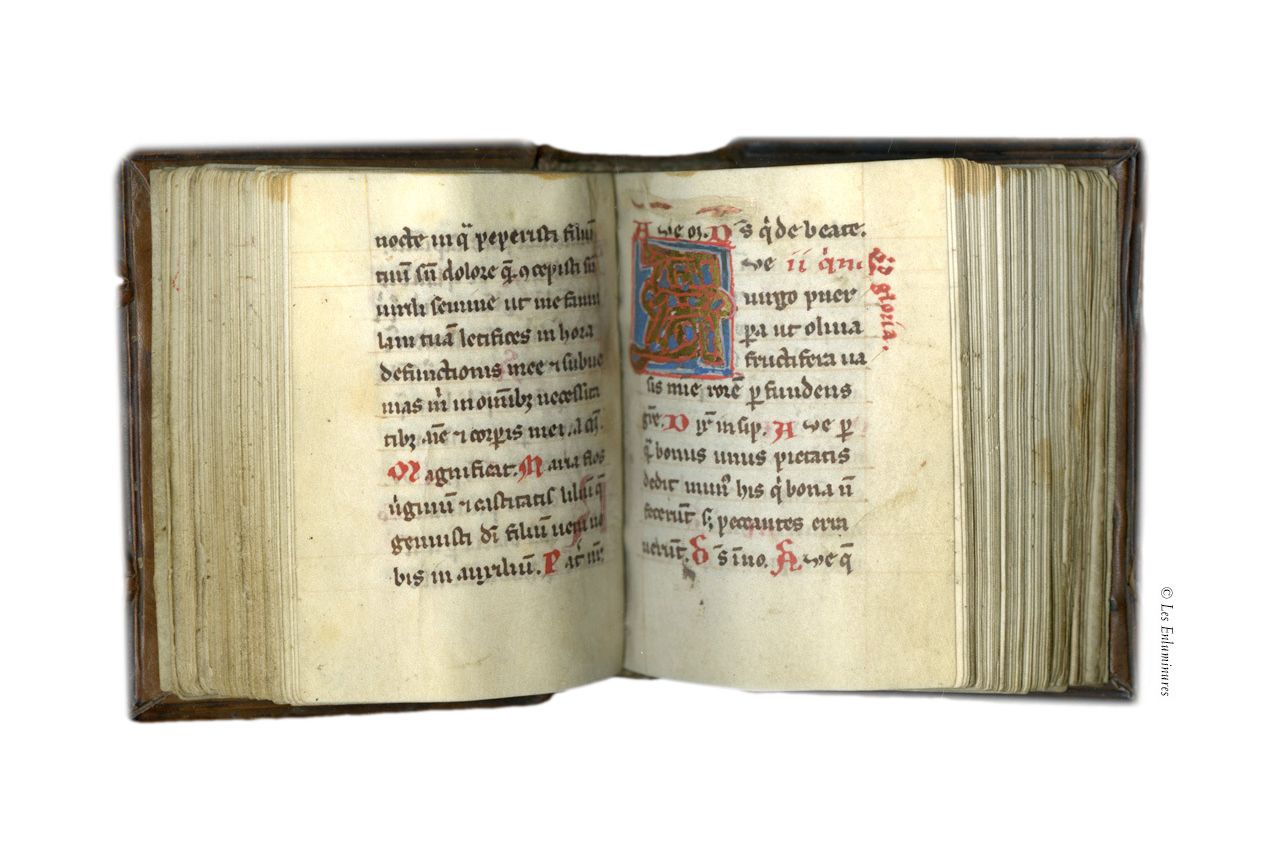 nocte in q̄ peperisti filiū
tuū sn̄ dolore q̄ ꝯcepisti sn̄
virili semine ut me famu
lam tuā letifices in hora
defunctionis mee ⁊ subue
nias m̄ in om̄ibꝫ necessita
tibꝫ aīe ⁊ corꝑis mei. a
Magnificat. Maria flos
v̓ginū ⁊ castitatis liliū q̄
genuisti dī filiū veni no
bis in auxiliū. Pat̄ nr̄.
Ave m. D s q̓ de beate.
ve ii
gloria.
virgo puer
ꝑa ut oliva
fructifera va
sis mie rorē ꝑfundens
gr̄e. D in sip. Ave ꝑ
q̄ bonus unus pietatis
dedit his q̓ bona n̄
fecerūt sꝫ peccantes
uerūt. D s īno. Ave q̄
© Les Enluminures